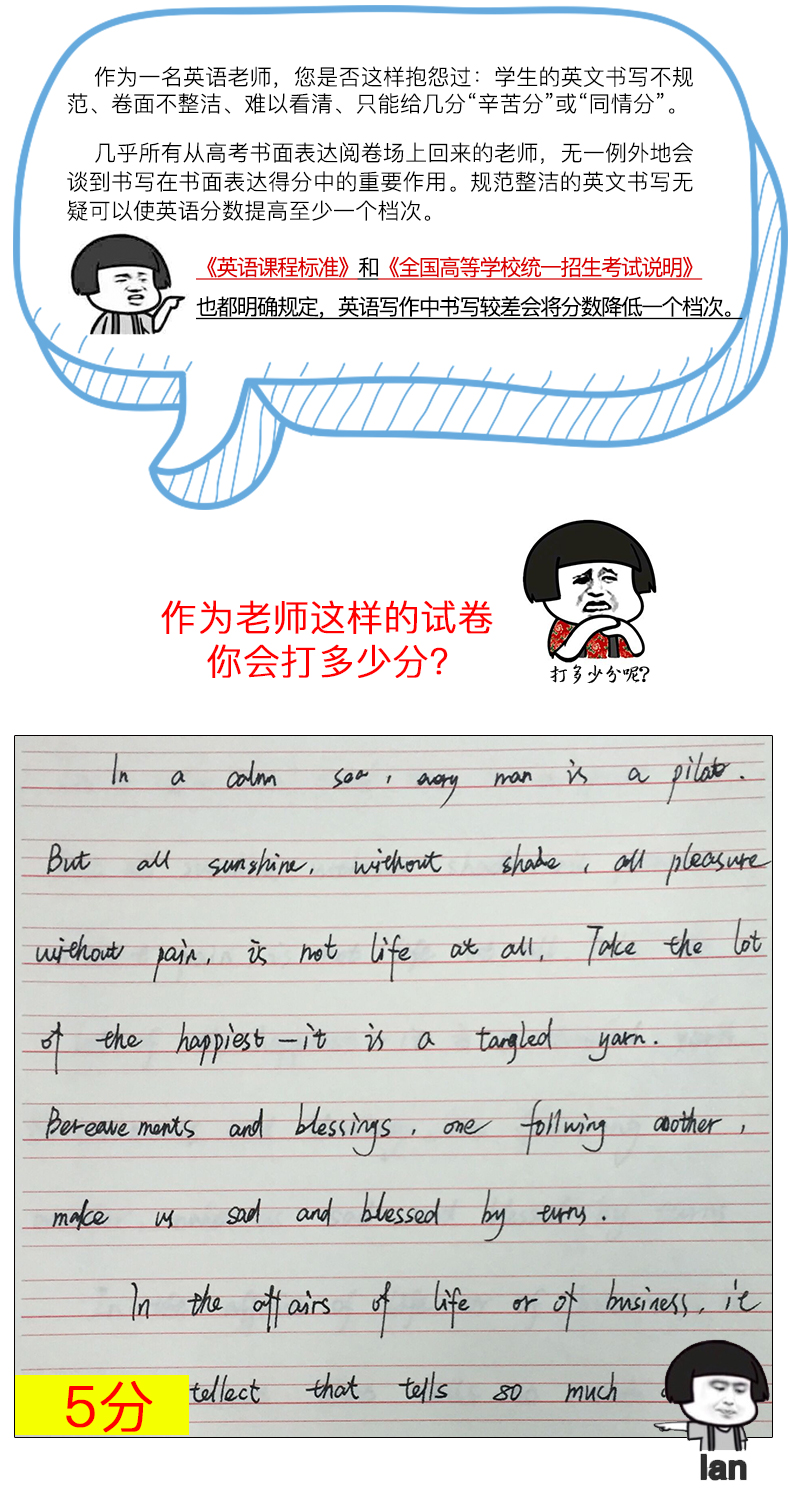 作为一名英语老师，您是否这样抱怨过：学生的英文书写不规
范、卷面不整洁、难以看清、只能给几分“辛苦分”或“同情分”。
几乎所有从高考书面表达阅卷场上回来的老师，无一例外地会
谈到书写在书面表达得分中的重要作用。规范整洁的英文书写无
疑可以使英语分数提高至少一个档次。
《英语课程标准》和《全国高等学校统一招生考试说明》
也都明确规定，英语写作中书写较差会将分数降低一个档次。
作为老师这样的试卷
你会打多少分？
打多少分呢？
In a calm sea, every man is a pilot.
But all sunshine, without shade, all pleasure
without pain, is not life at all, Take the lot
of the happiest - it is a tangled yarn.
Bereavements and blessings, one follwing another,
make us sad and blessed by turns.
In the affairs of life or of business, it
tellect that tells so much
5分
lan